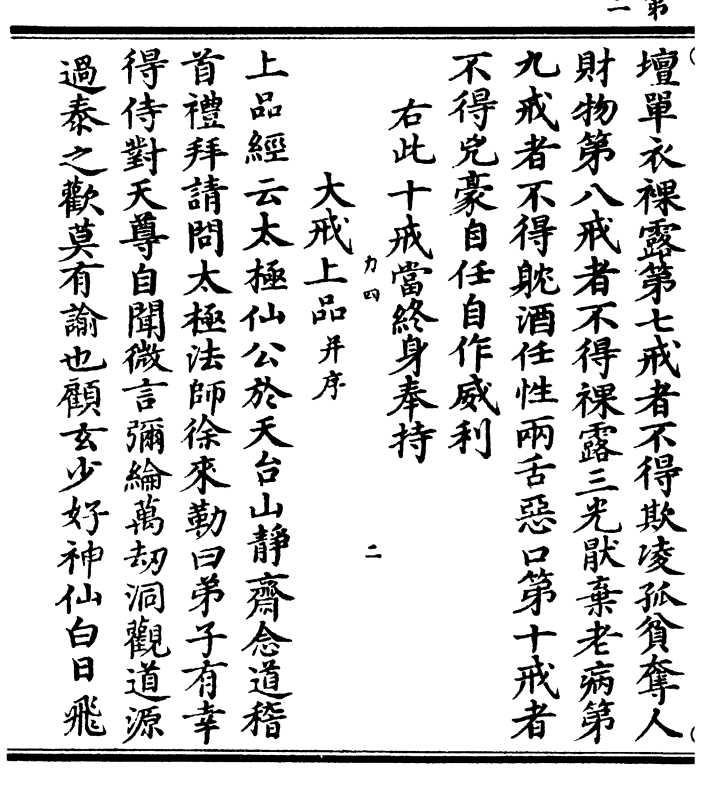 第
二
壇單衣裸露第七戒者不得欺凌孤貧奪人
財物第八戒者不得裸露三光猒棄老病第
九戒者不得躭酒任性兩舌惡口第十戒者
不得兇豪自任自作威利
右此十戒當終身奉持
力四
二
大戒上品并序
上品經云太極仙公於天台山靜齋念道稽
首禮拜請問太極法師徐來勒曰弟子有幸
得侍對天尊自聞微言彌綸萬劫洞觀道源
過泰之歡莫有諭也顧玄少好神仙白日飛